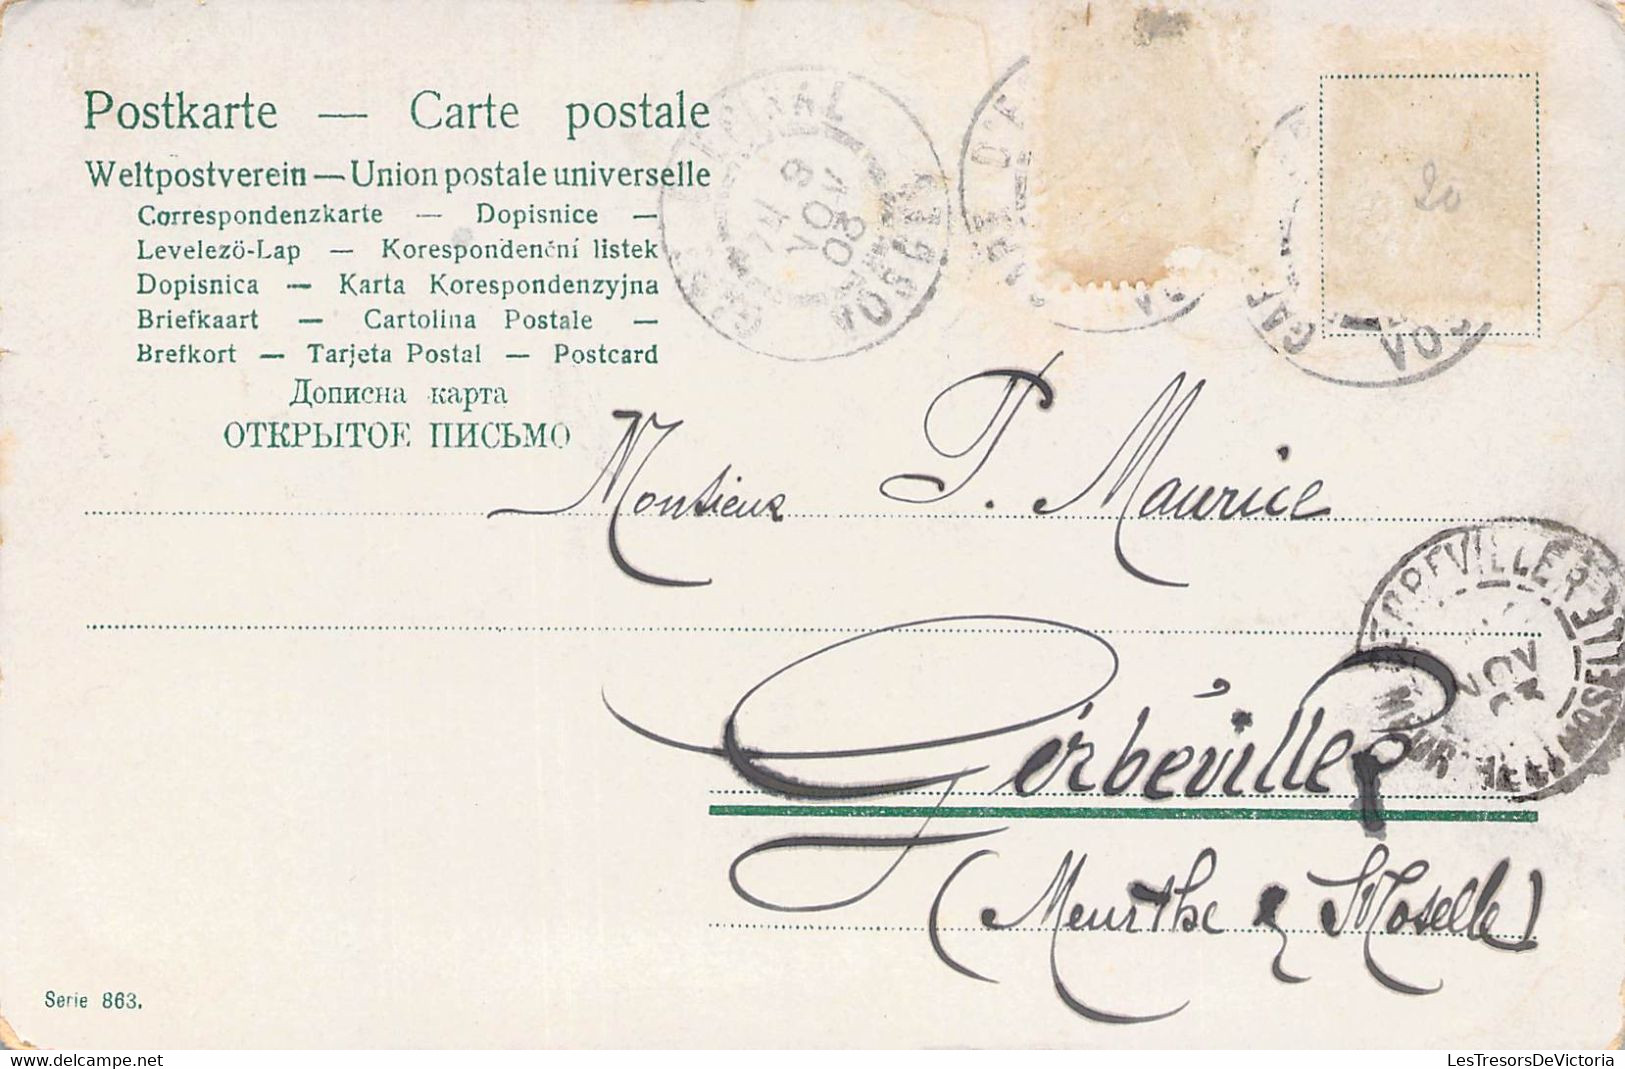 Postkarte — Carte postale
Weltpostverein — Union postale universelle
Correspondenzkarte — Dopisnice —
Levelezö-Lap — Korespondenční listek
Dopisnica — Karta Korespondenzyjna
Briefkaart — Cartolina Postale —
Brefkort — Tarjeta Postal — Postcard
Дописна карта
ОТКРЫТОЕ ПИСЬМО
EPINAL
VOSGES
8
NOV
03
20
Monsieur P. Maurice
Gerbéviller
(Meurthe & Moselle)
NOV
Serie 863.
LesTresorsDeVictoria